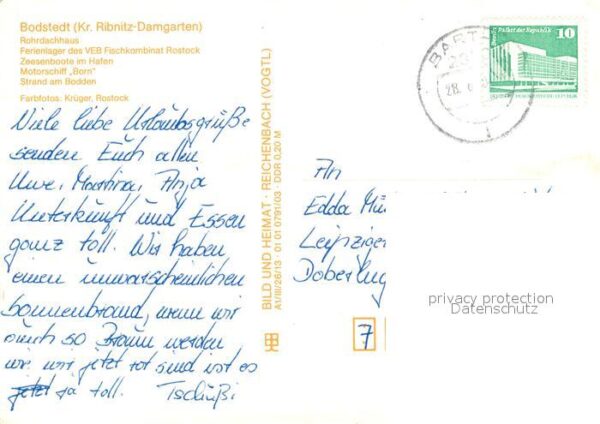 Bodstedt (Kr. Ribnitz-Damgarten)
Rohrdachhaus
Ferienlager des VEB Fischkombinat Rostock
Zeesenboote im Hafen
Motorschiff „Born"
Strand am Bodden
Farbfotos: Krüger, Rostock
Viele liebe Urlaubsgrüße
senden Euch allen
Uwe, Martina, Anja
Unterkunft und Essen
ganz toll. Wir haben
einen unwarscheinlichen
Sonnenbrand, wenn wir
auch so Braun werden
wie wir jetzt rot sind ist es
ja toll. Tschüßi
BILD UND HEIMAT · REICHENBACH (VOGTL)
A1/III/26/13 01 01 0791/03 · DDR 0,20 M
BARTH
28.
Palast der Republik
10
An
Edda
Leipziger
Doberlug
7
privacy protection
Datenschutz